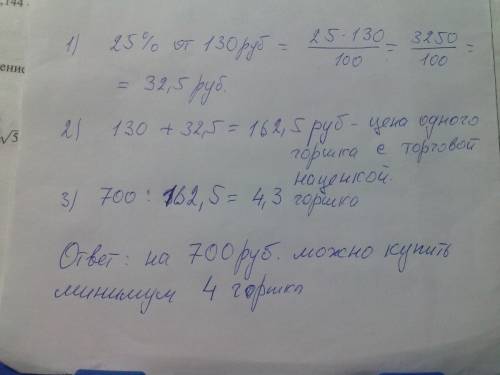 ,144
ение
√3
1) 25% от 130 руб = 25·130/100 = 3250/100 =
= 32,5 руб.
2) 130 + 32,5 = 162,5 руб - цена одного
горшка с торговой
наценкой.
3) 700 : 162,5 = 4,3 горшка
Ответ: на 700 руб. можно купить
минимум 4 горшка